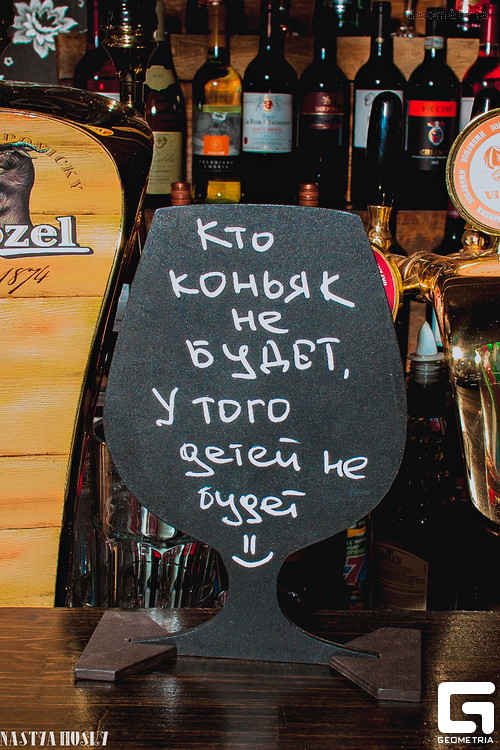 кто
коньяк
не
будет,
у того
детей не
будет
=)
zel
1874
NASTYA HUSKY
G
GEOMETRIA